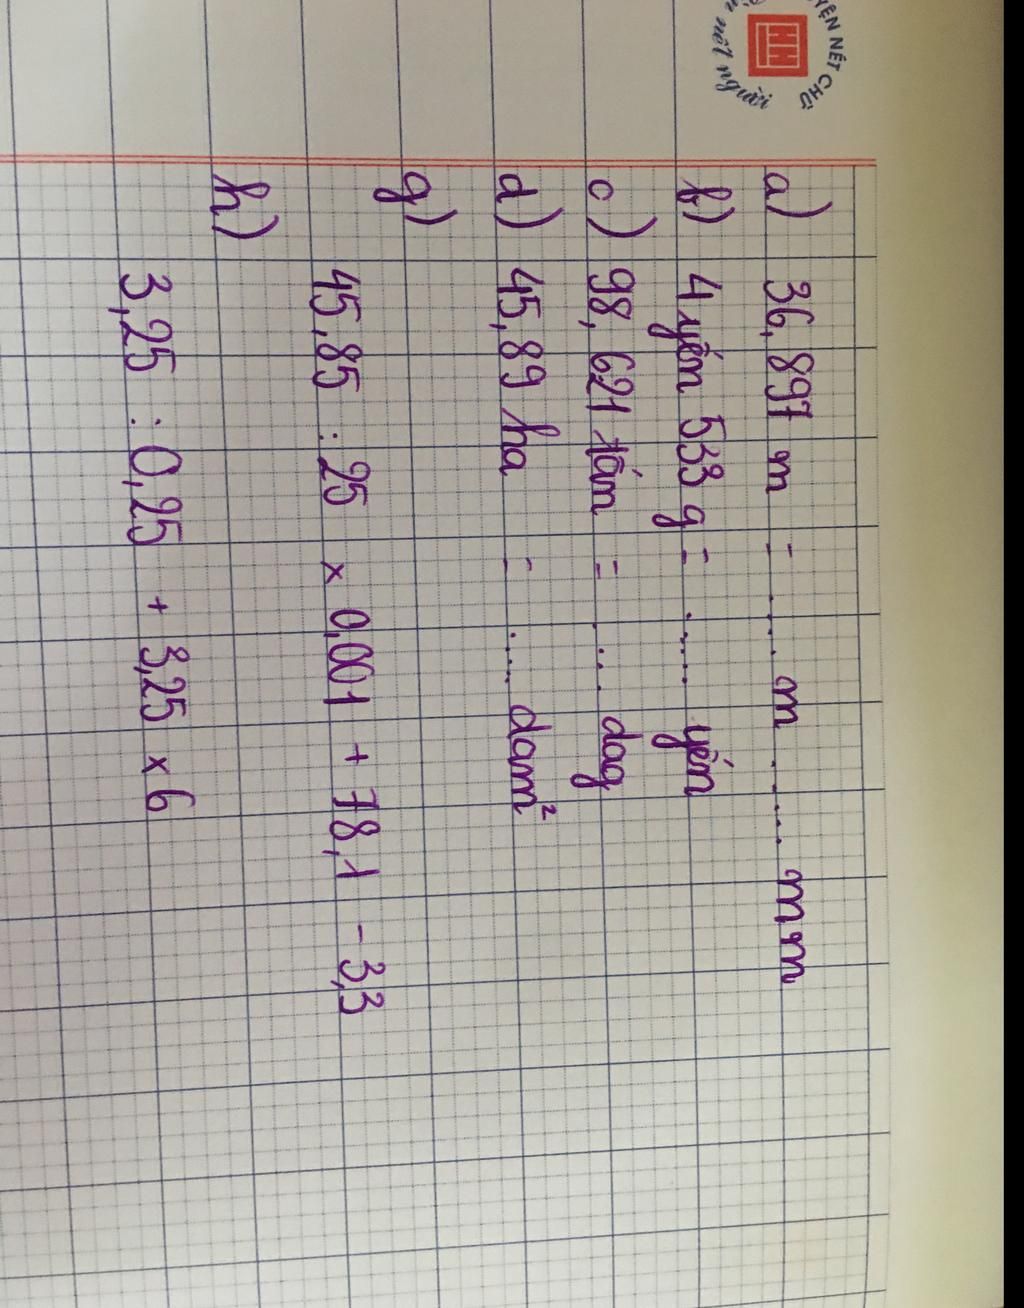 YỆN NÉT CHỮ
n nết người
a) 36,897 m = .... m ..... mm
b) 4 yến 533 g = .... yến
c) 98,621 tấn = .... dag
d) 45,89 ha = .... dam²
g)
45,85 : 25 x 0,001 + 78,1 - 3,3
h)
3,25 : 0,25 + 3,25 x 6